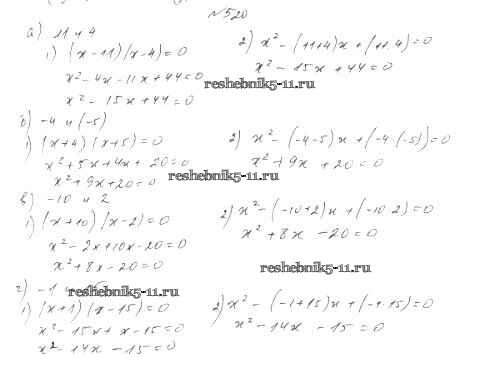 №520
а) 11 и 4
1) (x-11)(x-4)=0
x²-4x-11x+44=0
x²-15x+44=0
2) x²-(11+4)x+(11·4)=0
x²-15x+44=0
reshebnik5-11.ru
б) -4 и (-5)
1) (x+4)(x+5)=0
x²+5x+4x+20=0
x²+9x+20=0
2) x²-(-4-5)x+(-4·(-5))=0
x²+9x+20=0
reshebnik5-11.ru
в) -10 и 2
1) (x+10)(x-2)=0
x²-2x+10x-20=0
x²+8x-20=0
2) x²-(-10+2)x+(-10·2)=0
x²+8x-20=0
reshebnik5-11.ru
г) -1 и 15
reshebnik5-11.ru
1) (x+1)(x-15)=0
x²-15x+x-15=0
x²-14x-15=0
2) x²-(-1+15)x+(-1·15)=0
x²-14x-15=0